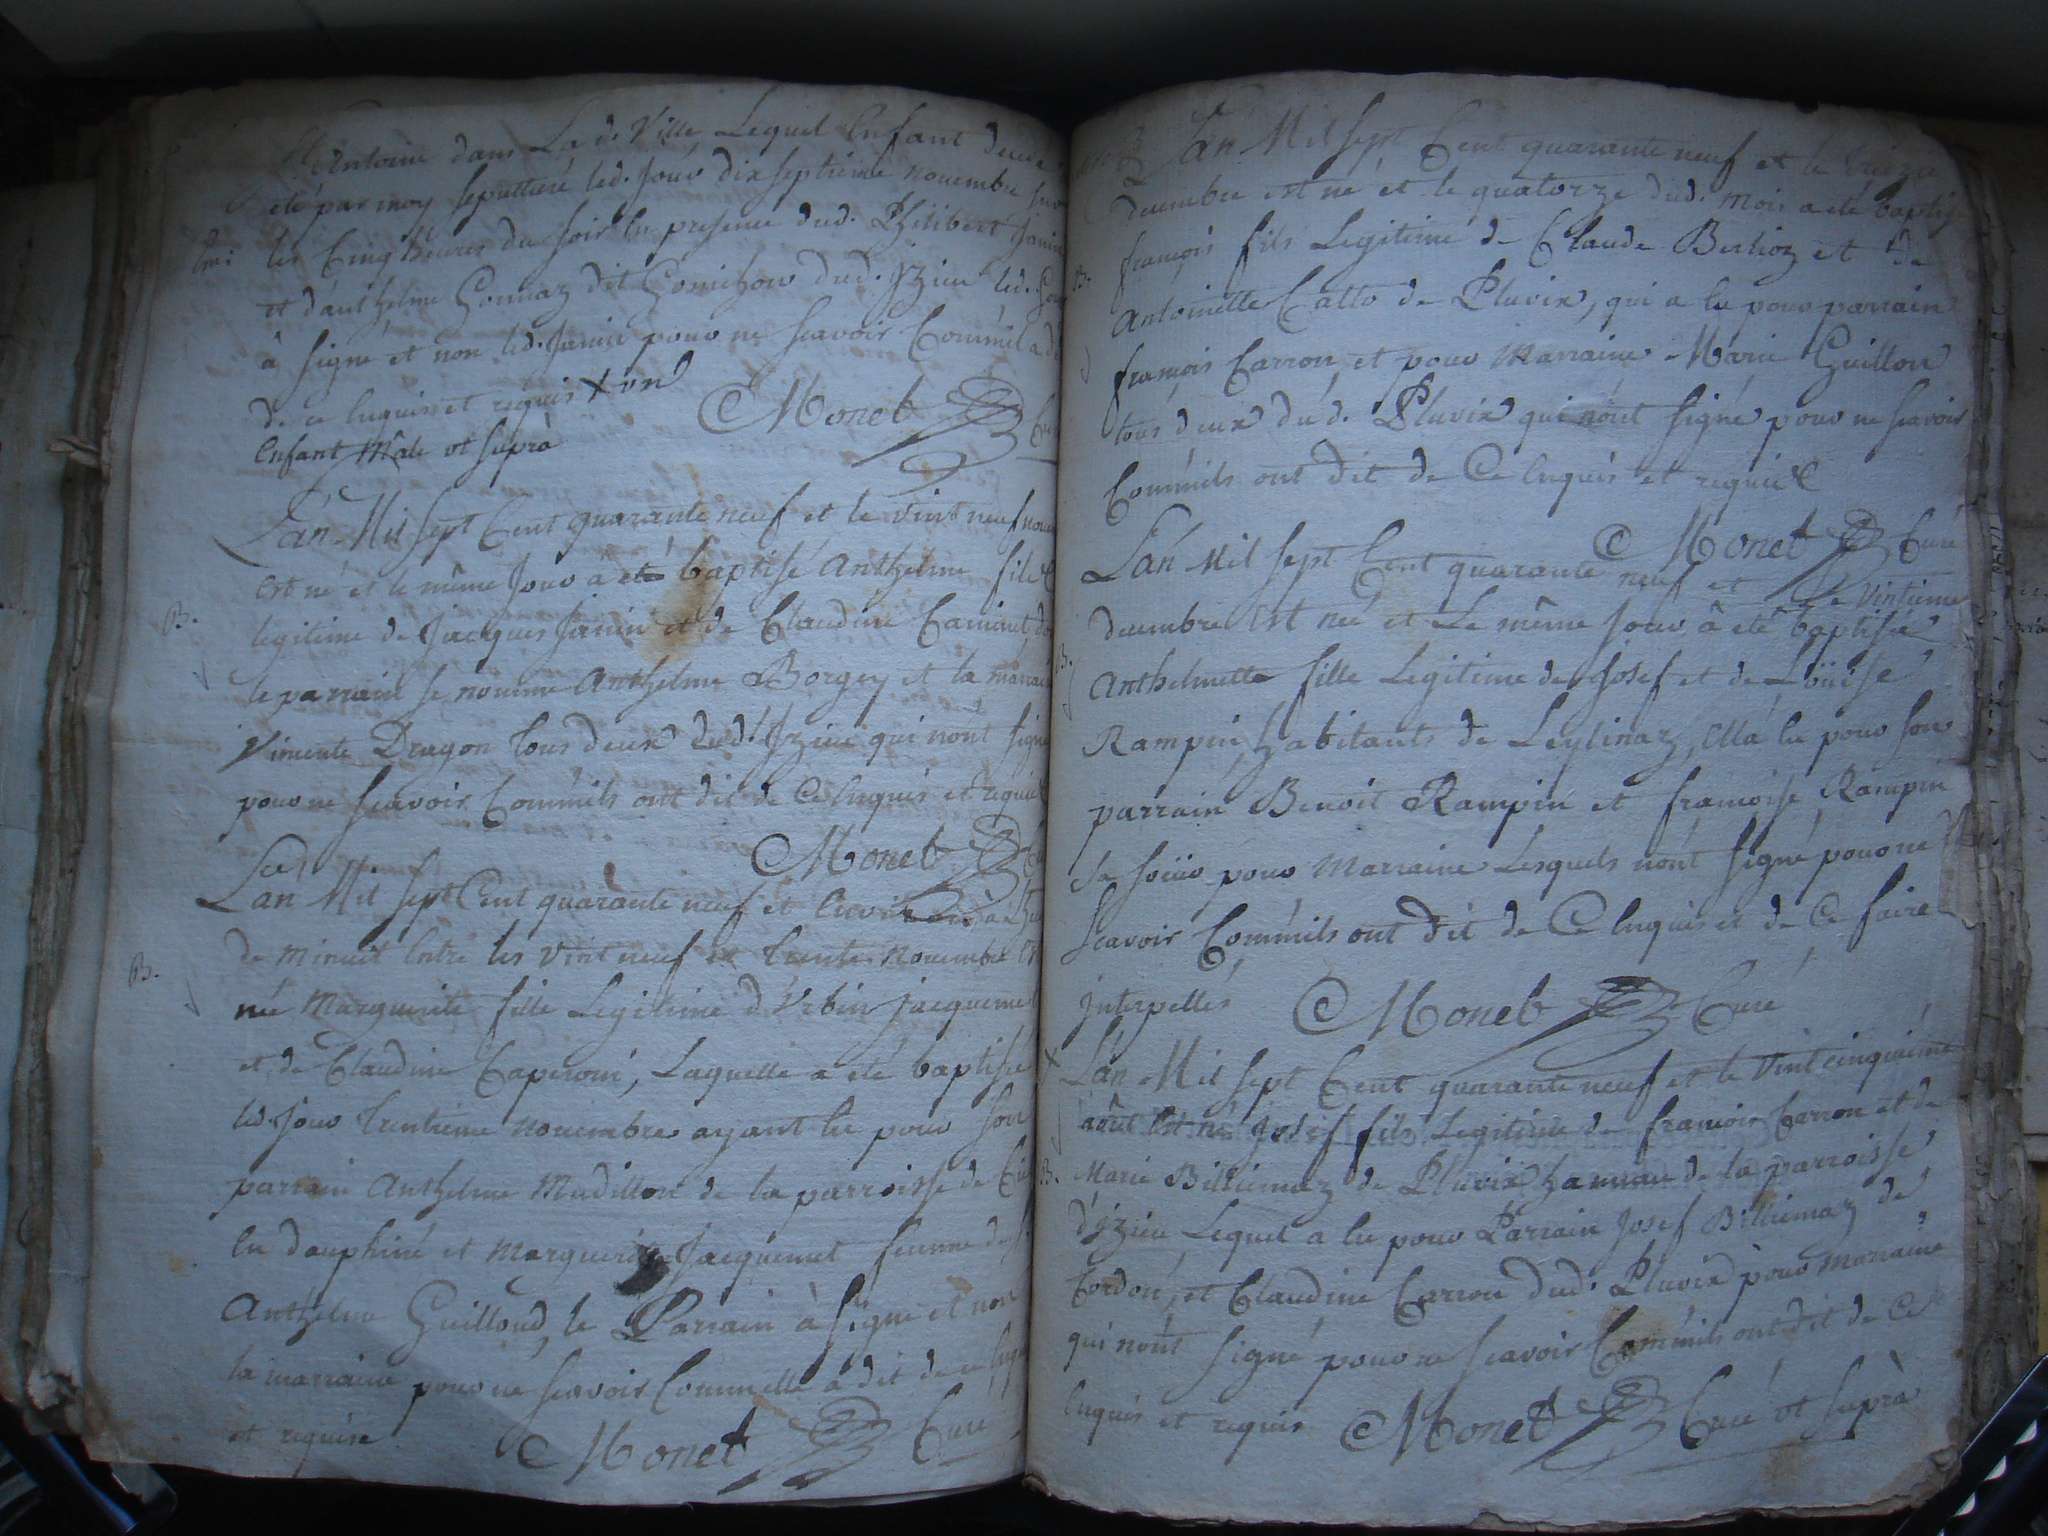 St Antoine dans La d. Ville Lequel Enfant decede
a eté par moy sepulturé led. Jour dix septieme novembre sur
les Cinq heures du soir En presence dud. Philibert Janin
et d'anthelme Gonnaz dit Gonichon dud. Izieu led. Gon
à signé et non led. Janin pour ne scavoir Comm'il a dit
de ce Enquis et requis X un
Enfant Mâle ut suprà
Monet Curé
L'an Mil sept Cent quarante neuf et le vint neuf nove
est né et le même Jour a eté baptisé Anthelme fils
B.
legitime de Jacques Janin et de Claudine Caminet, d
le parrain se nomme Anthelme Borgey et la marrai
Vincente Dragon tous deux dud. Izieu qui n'ont signé
pour ne scavoir Comm'ils ont dit de Ce Enquis et requis
Monet Curé
L'an Mil sept Cent quarante neuf et Environ
de minuit Entre les vint neuf et trente Novembre Est
B.
née Marguerite fille Legitime d'Urbin Jacquemet
et de Claudine Caperoni, Laquelle a eté baptisée
led. Jour trentieme Novembre ayant Eu pour son
parrain Anthelme Mudillon de la parroisse de
En dauphiné et Marguerite Jacquemet femme de
Anthelme Guilloud, le Parrain à signé et non
la marraine pour ne scavoir Comm'elle a dit de ce Enquise
et requise
Monet Curé
L'an Mil sept Cent quarante neuf et le treize
decembre est né et le quatorze dud. mois a eté baptisé
B.
françois fils Legitime de Claude Berlioz et de
Antoinette Catto de Pluvix, qui a Eu pour parrain
françois Carron et pour Marraine Marie Guillon
tous deux dud. Pluvix qui n'ont signé pour ne scavoir
Comm'ils ont dit de Ce Enquis et requis
Monet Curé
L'an Mil sept Cent quarante neuf et Le vintieme
decembre Est née et Le même Jour â eté baptisée
B.
Anthelmette fille Legitime de Josef et de Loüise
Rampin, habitants de Leylinaz, Ell'a Eu pour son
parrain Benoit Rampin et francoise Rampin
Sa soeur pour Marraine Lesquels n'ont signé pour ne
Scavoir Comm'ils ont dit de Ce Enquis et de Ce faire
Interpellés
Monet Curé
L'an Mil sept Cent quarante neuf et le vint cinquieme
août Est né Josef fils Legitime de francois Carron et de
B.
Marie Billiemaz de Pluvix hameau de la parroisse
d'Izieu Lequel a Eu pour Parrain Josef Billiemaz de
Cordon, et Claudine Carron dud. Pluvix pour Marraine
qui n'ont signé pour ne scavoir Comm'ils ont dit de Ce
Enquis et requis
Monet Curé ut suprà